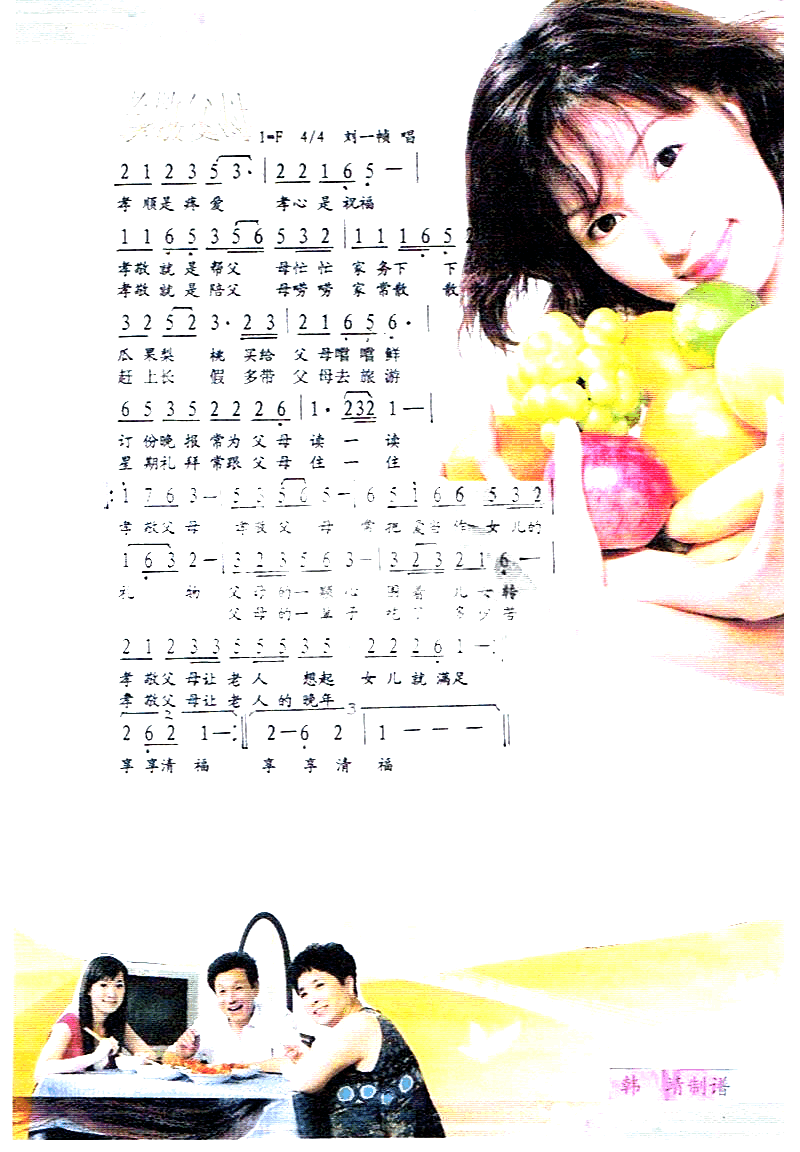 孝敬父母
1=F 4/4 刘一帧 唱
2 1 2 3 5 3· | 2 2 1 6 5 — |
孝 顺是 疼 爱 孝心 是 祝福
1 1 6 5 3 5 6 5 3 2 | 1 1 1 6 5 2
孝敬 就 是 帮父 母忙 忙 家 务下 下
孝敬 就 是 陪父 母唠 唠 家 常散 散
3 2 5 2 3· 2 3 | 2 1 6 5 6· |
瓜 果梨 桃 买给 父 母嚐 嚐 鲜
赶 上长 假 多带 父 母去 旅 游
6 5 3 5 2 2 2 6 | 1· 2 3 2 1 — |
订 份晚 报 常为 父 母 读 一 读
星 期礼 拜 常跟 父 母 住 一 住
: 1 7 6 3 — | 5 3 5 6 5 — | 6 5 1 6 6 5 3 2 |
孝 敬父 母 孝敬 父 母 常 把 爱当 作 女 儿的
1 6 3 2 — | 3 2 3 5 6 3 — | 3 2 3 2 1 6· — |
礼 物 父 母 的一 颗 心 围 着 儿 女 转
父 母 的一 辈 子 吃 了 多 少 苦
2 1 2 3 3 5 5 5 3 5 2 2 2 6 1 — :
孝 敬父 母让 老 人 想起 女 儿 就 满足
孝 敬父 母让 老 人 的 晚年
2 3
2 6 2 1 — :‖ 2 — 6 2 | 1 — — — ‖
享 享清 福 享 享 清 福
韩 靖制谱